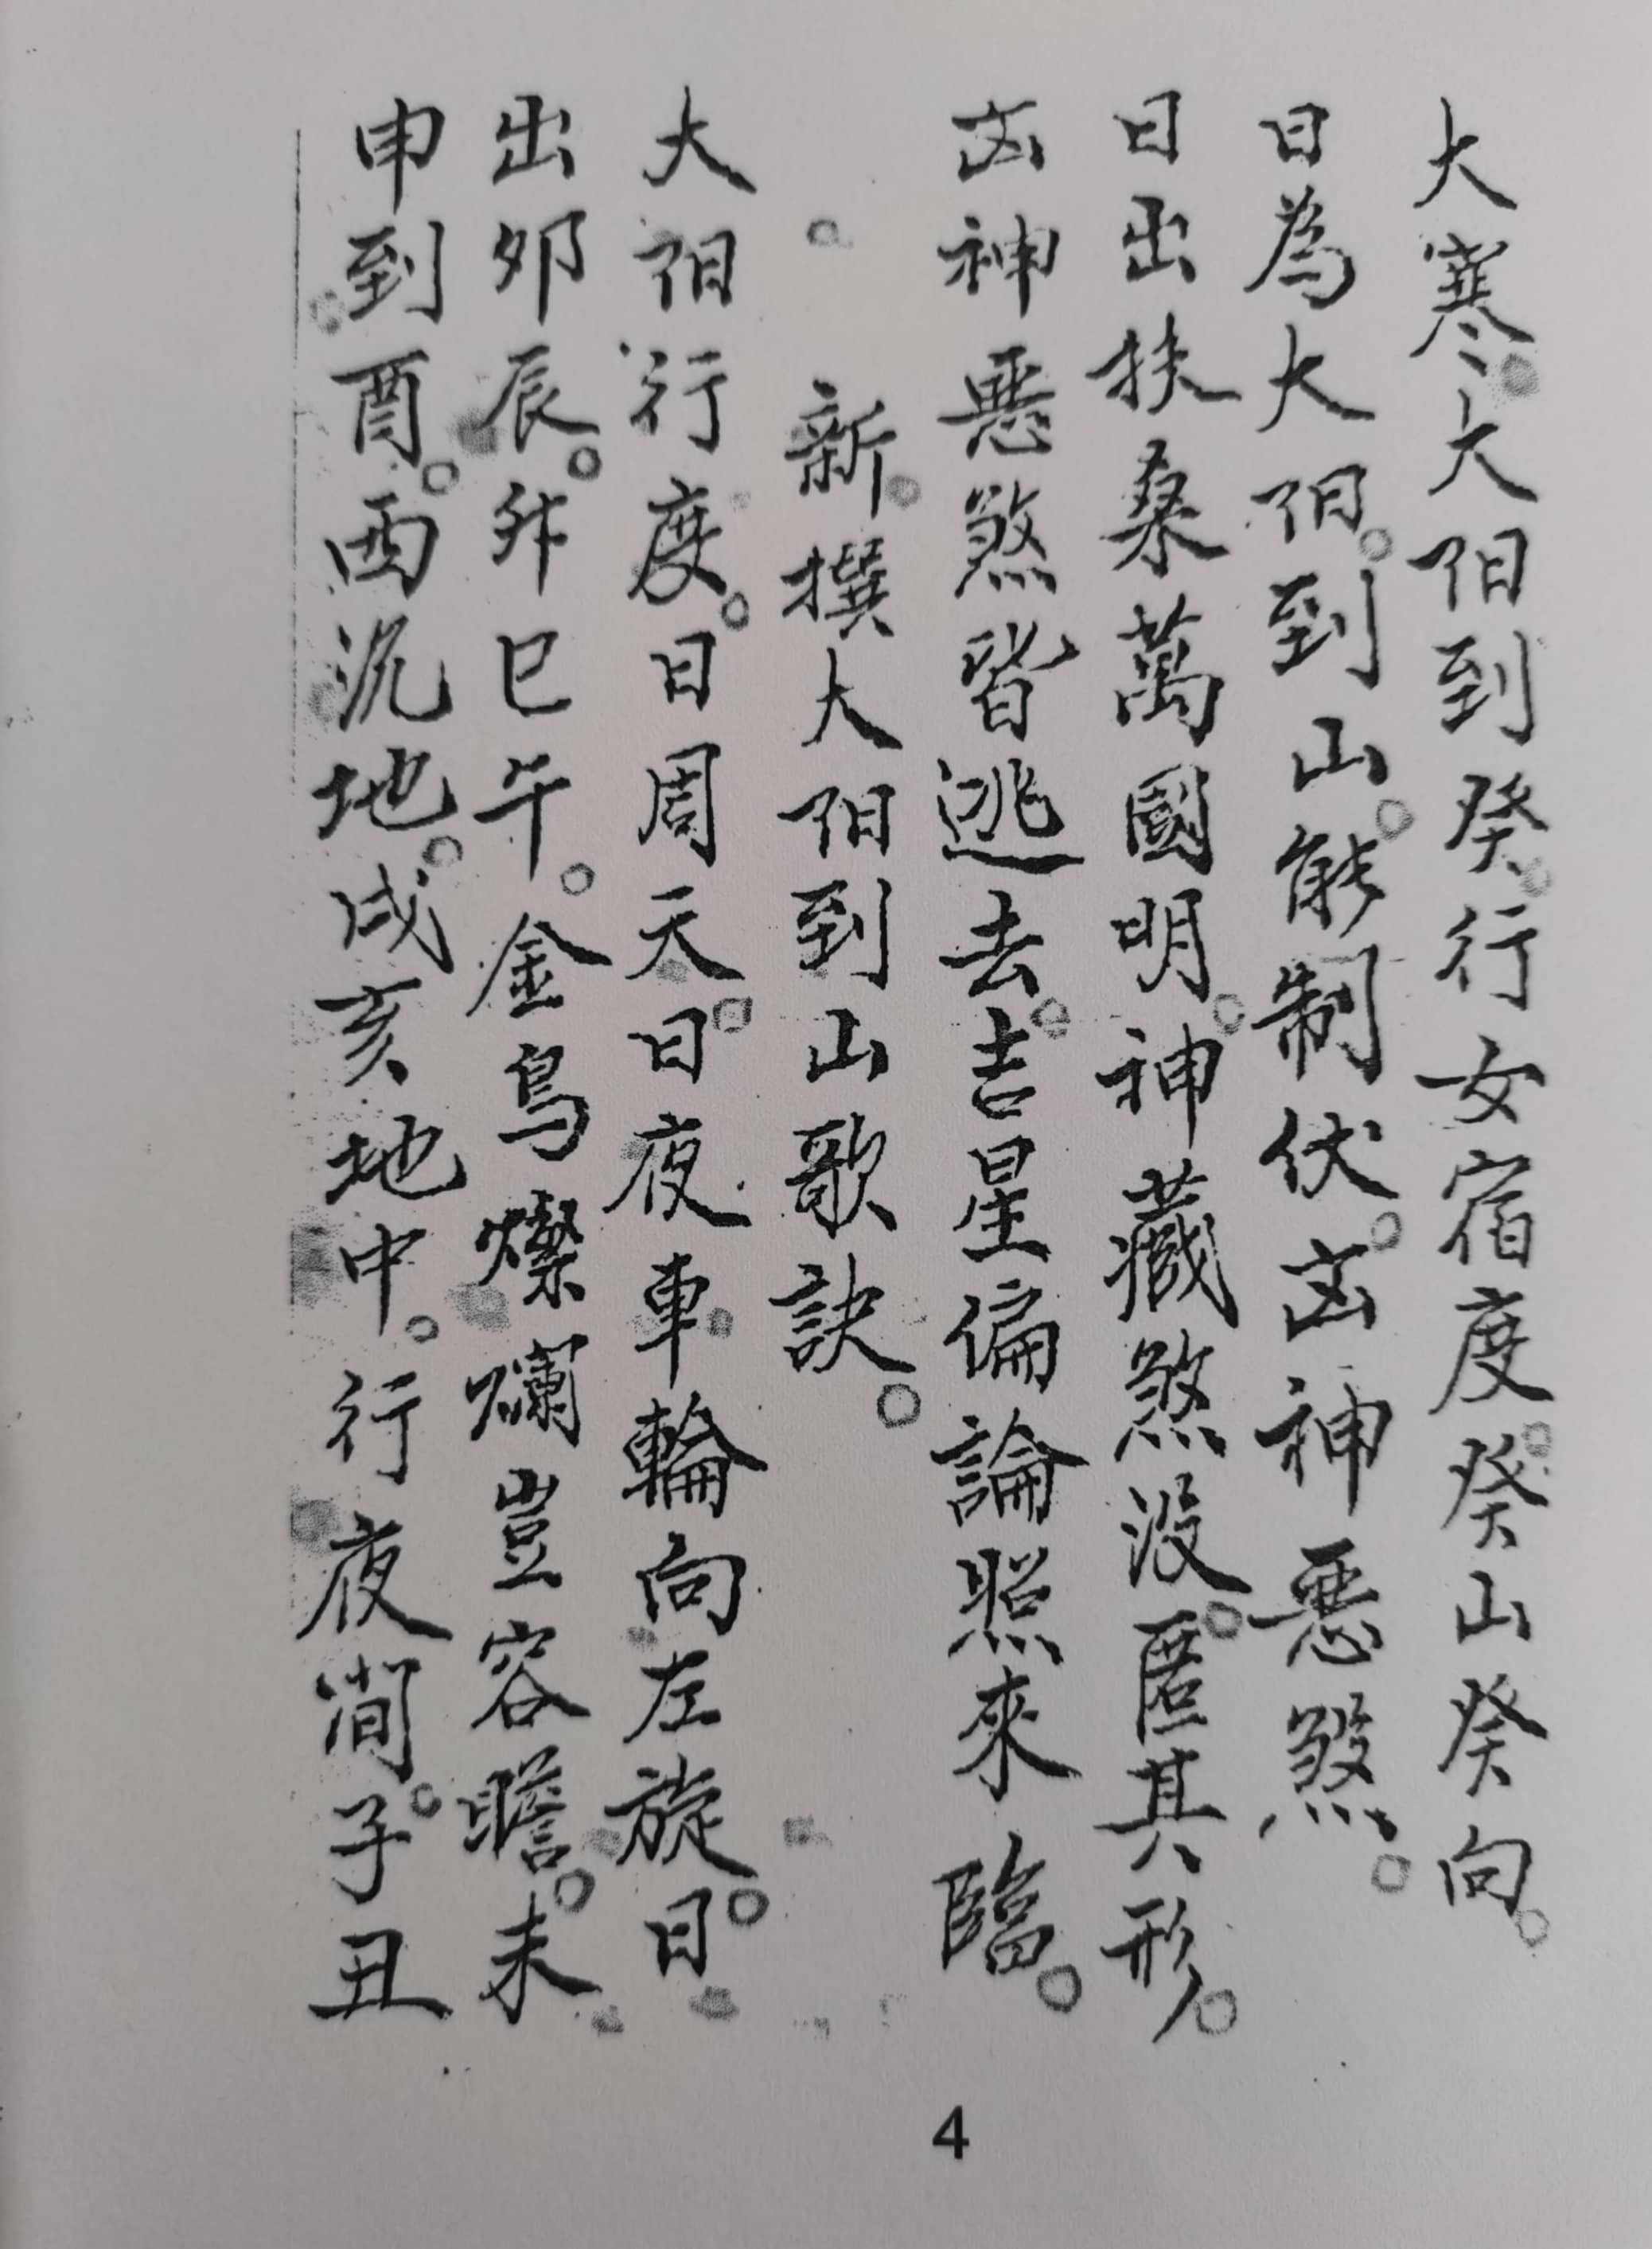 大寒大阳到癸行女宿度癸山癸向。
日為大阳。到山能制伏。凶神惡煞。
日出扶桑萬國明。神藏煞没匿其形。
凶神惡煞皆逃去吉星偏論照來臨。
新撰大阳到山歌訣。
大阳行度。日周天。日夜車輪向左旋。日
出夘辰。斜巳午。金烏燦爛豈容瞻。未
申到酉。西沉地。戌亥地中。行夜间。子丑
4